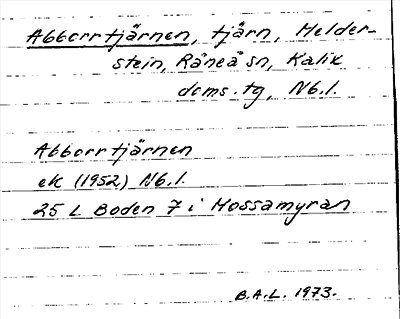 Abborrtjärnen, tjärn, Melder-
stein, Råneå sn, Kalix
doms.tg, Nb,l.
Abborrtjärnen
ek (1952) Nb,l.
25 L Boden 7 i Mossamyran
B.A.L. 1973.